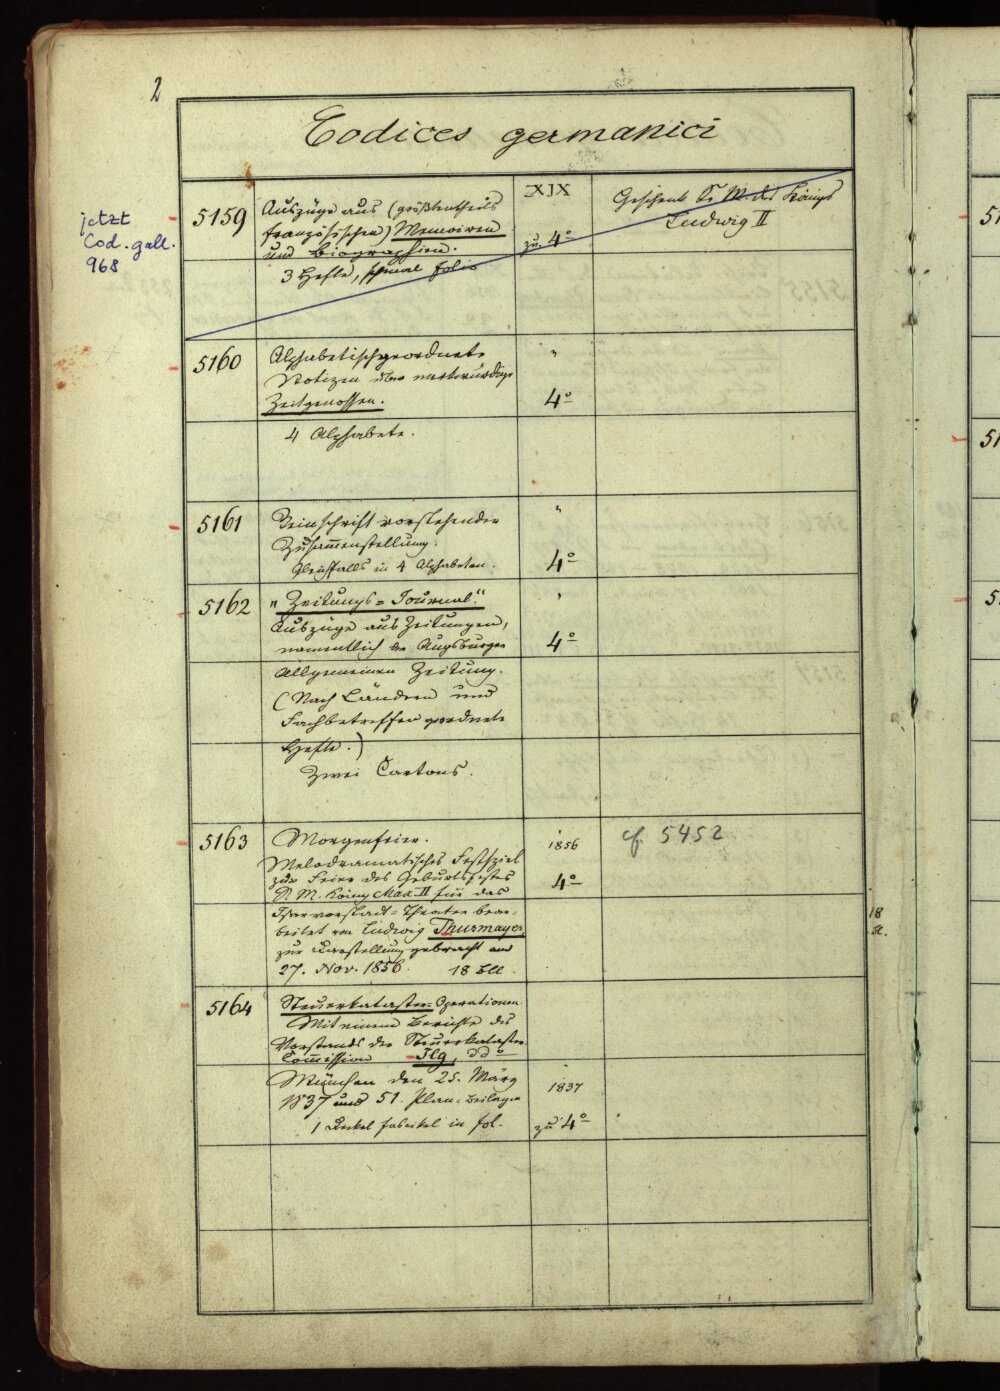 2
Codices germanici
jetzt
Cod. gall.
968
5159
Auszüge aus (größtentheils
französischen) Memoiren
und Biographien.
3 Hefte, schmal folio
XIX
zu 4°
Geschenk Sr. M. des Königs
Ludwig II
5160
Alphabetischgeordnete
Notizen über merkwürdige
Zeitgenossen.
4 Alphabete.
"
4°
5161
Reinschrift vorstehender
Zusammenstellung.
Gleichfalls in 4 Alphabeten.
"
4°
5162
"Zeitungs=Journal"
Auszüge aus Zeitungen,
namentlich der Augsburger
Allgemeinen Zeitung.
(Nach Ländern und
Fachbetreffen geordnete
Hefte.)
Zwei Cartons.
"
4°
5163
Morgenfeier.
Melodramatisches Festspiel
zur Feier des Geburtsfestes
S. M. König Max II für das
Isarvorstadt=Theater bear-
beitet von Ludwig Thurmayer,
zur Darstellung gebracht am
27. Nov. 1856. 18 Bll.
1856
4°
cf. 5452
5164
Steuerkataster=Operationen.
Mit einem Berichte des
Vorstands der Steuerkataster
Commission Ilg, dd°
München den 25. März
1837 und 51 Plan=Beilagen
1 fascikel in fol.
1837
zu 4°
18
Bl.
51
51
5